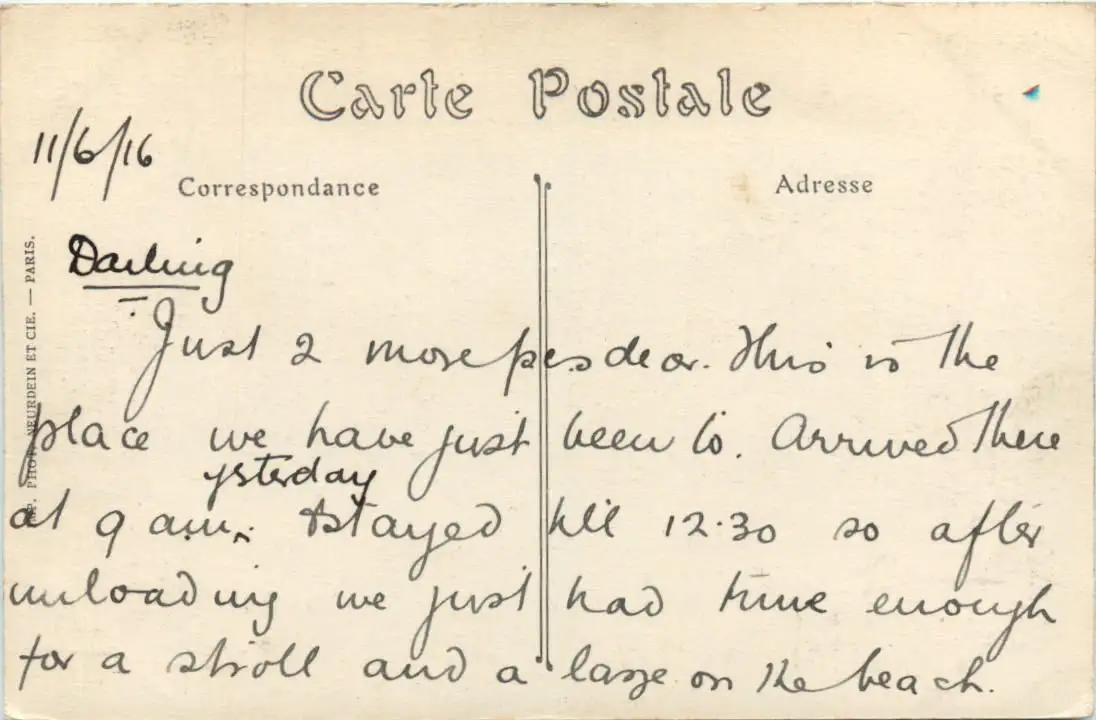 Carte Postale
11/6/16
Correspondance
Adresse
Darling
Just 2 more pcs dear. This is the
place we have just been to. Arrived there
ysterday
at 9 a.m. & stayed till 12.30 so after
unloading we just had time enough
for a stroll and a laze on the beach.
IMP. PHOT. NEURDEIN ET CIE. — PARIS.